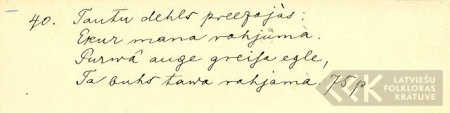 40. Tautu dehls preezajàs:
Ekur mana rahjuma.
Purwâ auga greisa egle,
Ta buhs tawa rahjama. 75 p.
LATVIEŠU
FOLKLORAS
KRĀTUVE